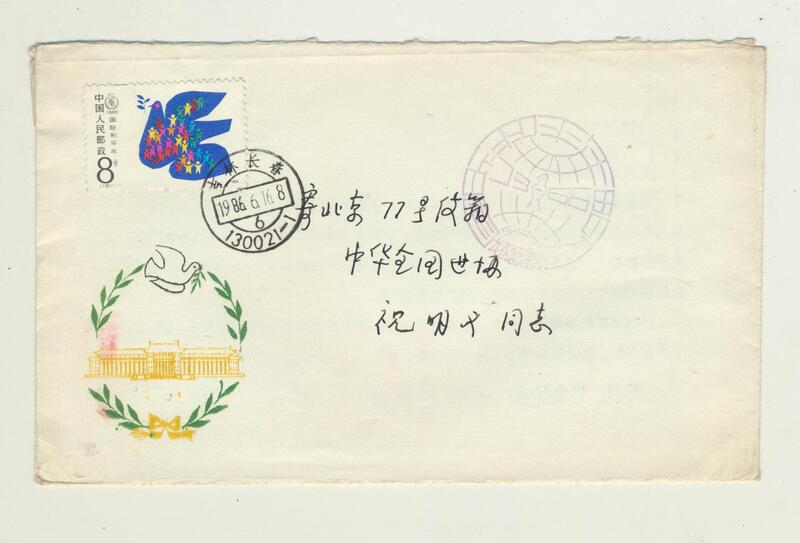 中国人民邮政
1986国际和平年
8分
吉林长春
1986.6.16.8
6
130021-1
寄北京77号皮箱
中华全国世协
祝明 同志